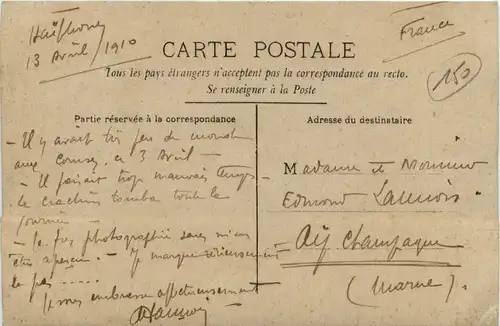 Haïphong
13 Avril / 1910
France
150
CARTE POSTALE
Tous les pays étrangers n'acceptent pas la correspondance au recto.
Se renseigner à la Poste
Partie réservée à la correspondance
— Il y avait très peu de monde
aux courses, ce 3 Avril —
— Il faisait trop mauvais temps —
le crachin tomba toute la
journée —
— Je fus photographié sans m'en
être aperçu. — Je marque sérieusement
le pas .....
Je vous embrasse affectueusement
Adresse du destinataire
Madame et Monsieur
Edmond Launois
Aÿ. Champagne
(Marne).